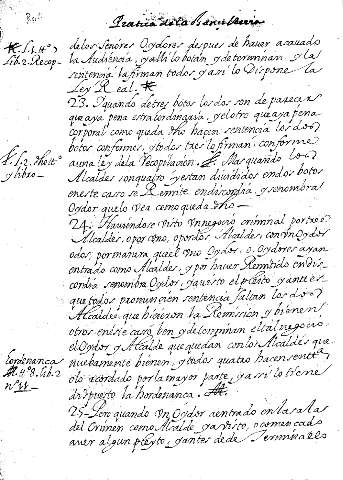 Pratica de la R. Chancilleria
* L. 1. tt.º 7
Lib. 2. Recop.
de los señores Oydores despues de haver acavado
la Audiencia, y alli lo botan, y determinan y la
sentencia la firman todos, y asi lo Dispone la
Ley Real. *
23. I quando de tres botos los dos son de parecer
que aya pena estraordinaria, y el otro que aya pena
corporal como queda dho hacen sentencia los dos
botos conformes, y todos tres lo firman, conforme
a una ley de la Recopilacion. Mas quando los
Alcaldes son quatro y estan divididos en dos botos
en este caso se Remite en discordia, y se nombra
Oydor que lo vea como queda dho
24. Haviendose visto un negocio criminal por tres
Alcaldes, o por uno, o por dos Alcaldes, con un Oydor
o dos, por manera que el uno Oydor, o Oydores ayan
entrado como Alcaldes, y por haver Remitido en dis-
cordia se nombra Oydor, y a visto el pleyto, y antes
que todos pronuncien sentencia, faltan los dos
Alcaldes que hicieron la Remission, y vienen
otros en este caso, ben y determinan el tal negocio
el Oydor y Alcalde que quedan con los Alcaldes que
nuevamente bienen, y todos quatro hacen sent.ª
o lo acordado por la mayor parte, y asi lo tiene
dispuesto la hordenanza.
hordenanza
tt.º 8. Lib. 2
nº 11
25. Pero quando un Oydor a entrado en las salas
del Crimen como Alcalde y a visto, o comenzado
a ver algun pleyto, y antes de determinarlo